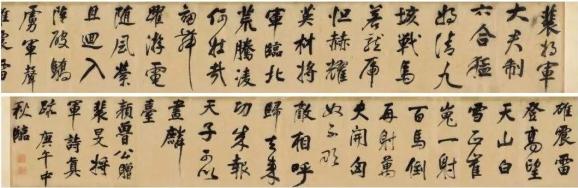 裴將軍
大夫制
六合猛
將清九
垓戰馬
若龍虎
恒赫耀
英材將
軍臨北
荒騰凌
何壯哉
劍舞
躍游電
隨風縈
且迴入
陣破驕
虜軍聲
雄震雷
雄震雷
登高望
天山白
雪正崔
嵬一射
百馬倒
再射萬
夫開匈
奴不敢
敵相呼
歸去來
功成報
天子可以
畫麟
臺
顏魯公贈
裴旻將
軍詩真
跡庚午中
秋臨